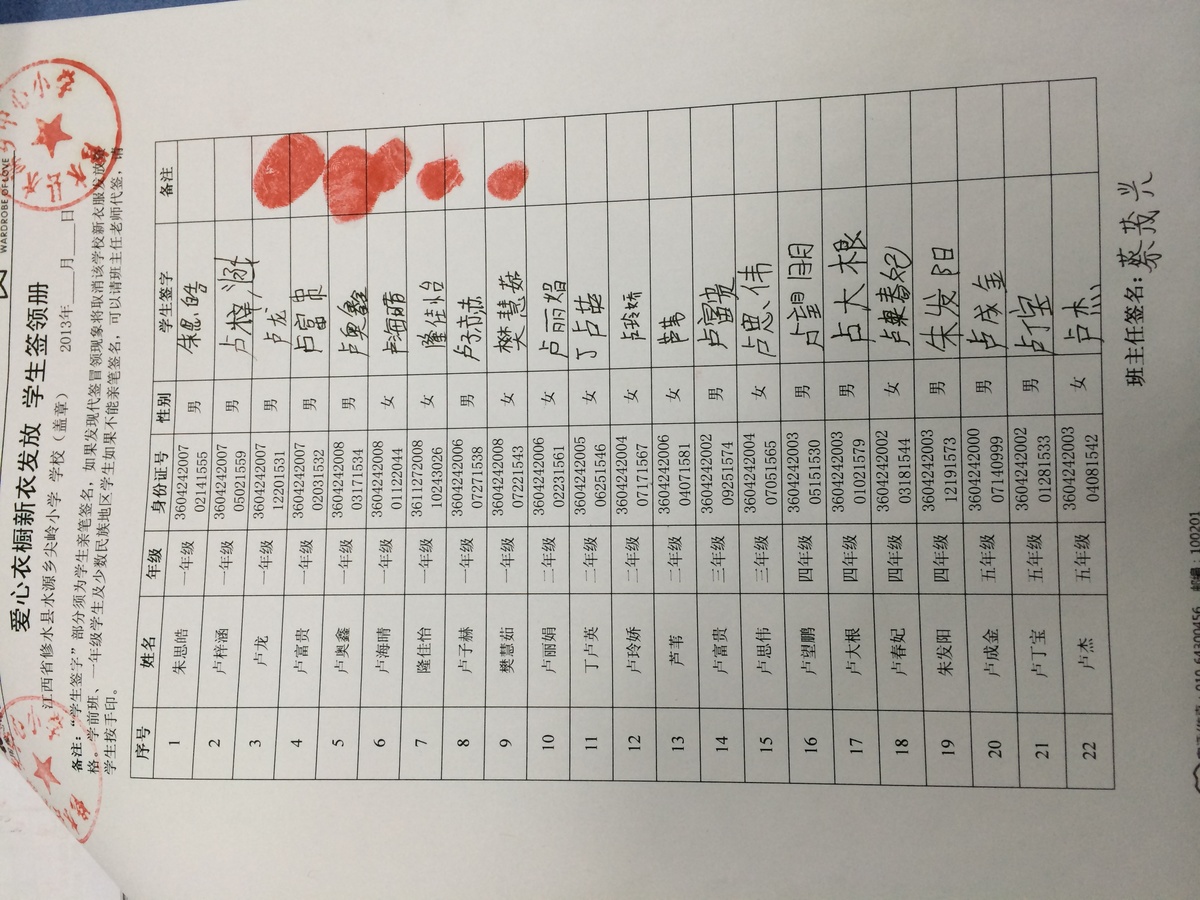 WARDROBE OF LOVE
爱心衣橱新衣发放 学生签领册
江西省修水县水源乡尖岭小学 学校（盖章） 2013年____月____日
备注：“学生签字”部分须为学生亲笔签名，如果发现代签冒领现象将取消该学校新衣服发放资
格。学前班、一年级学生及少数民族地区学生如果不能亲笔签名，可以请班主任老师代签，请
学生按手印。
序号 姓名 年级 身份证号 性别 学生签字 备注
1 朱思皓 一年级 3604242007 男 朱思皓
02141555
2 卢梓涵 一年级 3604242007 男 卢梓涵
05021559
3 卢龙 一年级 3604242007 男 卢龙
12201531
4 卢富贵 一年级 3604242007 男 卢富贵
02031532
5 卢奥鑫 一年级 3604242008 男 卢奥鑫
03171534
6 卢海晴 一年级 3604242008 女 卢海晴
01122044
7 隆佳怡 一年级 3611272008 女 隆佳怡
10243026
8 卢子赫 一年级 3604242006 男 卢子赫
07271538
9 樊慧茹 一年级 3604242008 女 樊慧茹
07221543
10 卢丽娟 二年级 3604242006 女 卢丽娟
02231561
11 丁卢英 二年级 3604242005 女 丁卢英
06251546
12 卢玲娇 二年级 3604242004 女 卢玲娇
07171567
13 芦苇 二年级 3604242006 女 芦苇
04071581
14 卢富贵 三年级 3604242002 男 卢富贵
09251574
15 卢思伟 三年级 3604242004 女 卢思伟
07051565
16 卢望鹏 四年级 3604242003 男 卢望朋
05151530
17 卢大根 四年级 3604242003 男 卢大根
01021579
18 卢春妃 四年级 3604242002 女 卢春妃
03181544
19 朱发阳 四年级 3604242003 男 朱发阳
12191573
20 卢成金 五年级 3604242000 男 卢成金
07140999
21 卢丁宝 五年级 3604242002 男
01281533
22 卢杰 五年级 3604242003 女 卢杰
04081542
班主任签名：蔡茂兴
邮编：100201